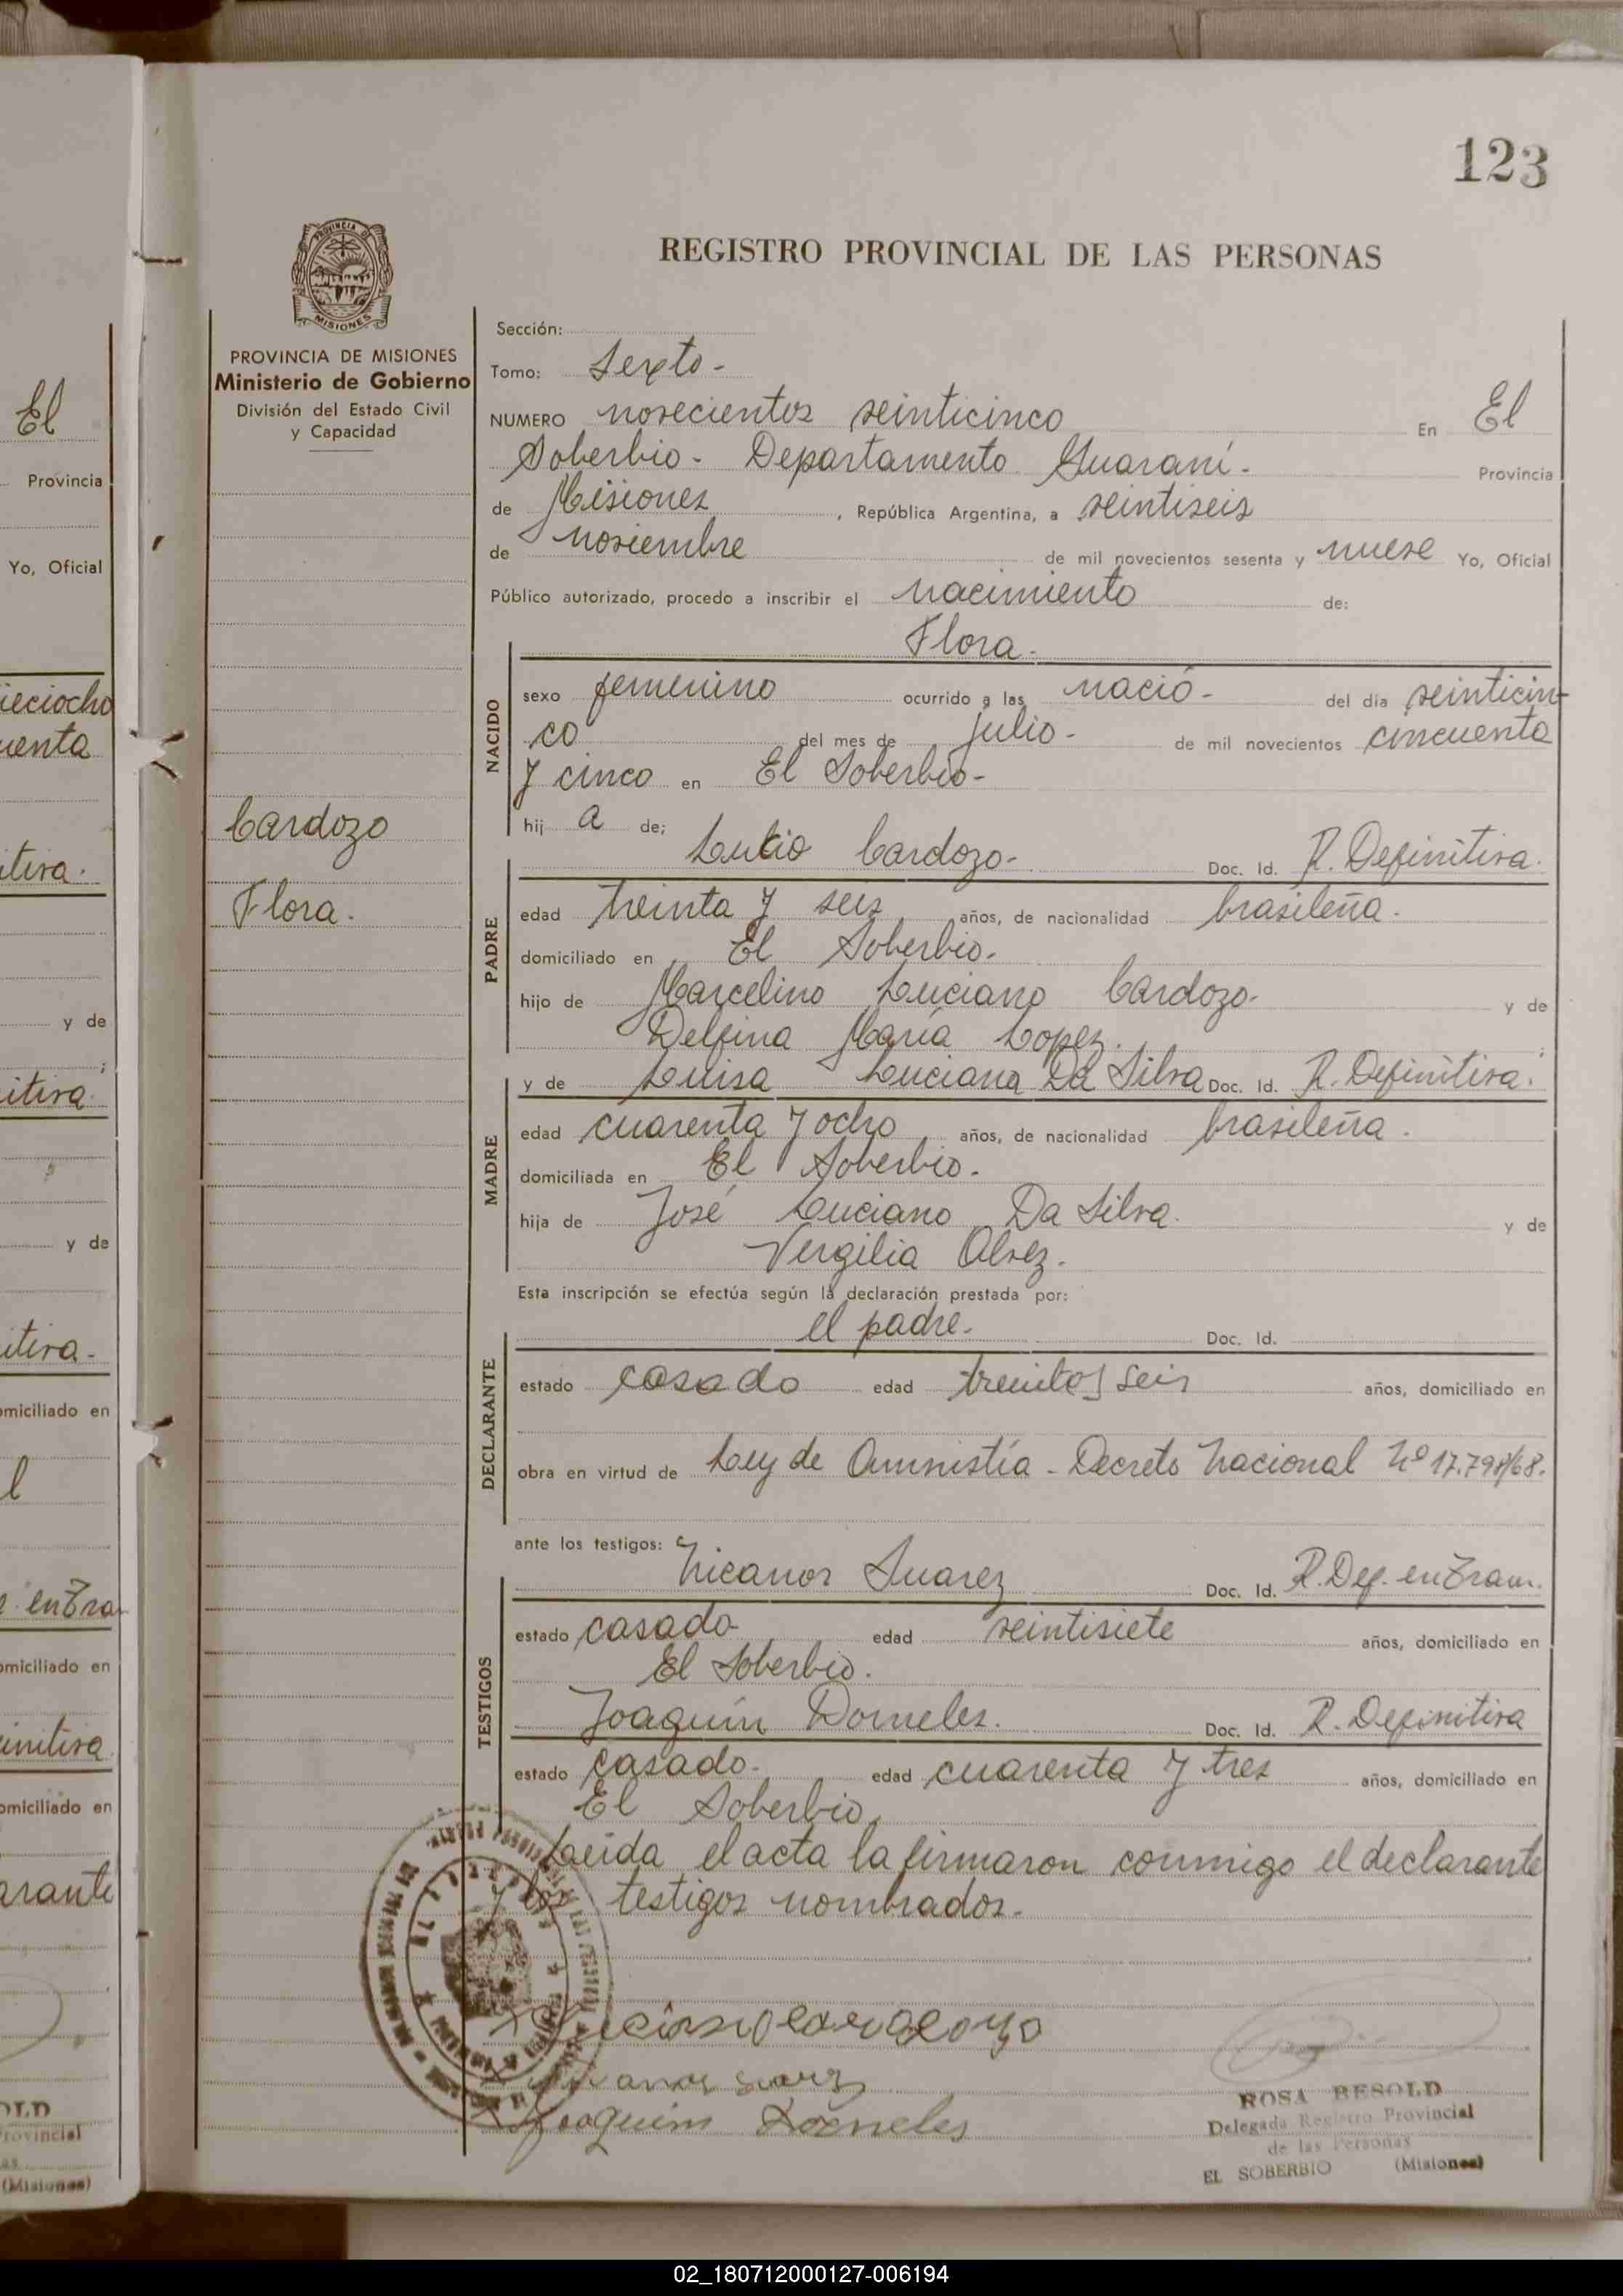 123
REGISTRO PROVINCIAL DE LAS PERSONAS
PROVINCIA DE
MISIONES
PROVINCIA DE MISIONES
Ministerio de Gobierno
División del Estado Civil
y Capacidad
Cardozo
Flora.
Sección:
Tomo: Sexto-
NUMERO novecientos veinticinco En El
Soberbio- Departamento Guaraní- Provincia
de Misiones, República Argentina, a veintiseis
de noviembre de mil novecientos sesenta y nueve Yo, Oficial
Público autorizado, procedo a inscribir el nacimiento de:
Flora.
NACIDO
sexo femenino ocurrido a las nació- del día veinticin-
co del mes de julio- de mil novecientos cincuenta
y cinco en El Soberbio-
hij a de;
PADRE
Cardozo- Doc. Id. R. Definitiva.
edad treinta y seis años, de nacionalidad brasileña.
domiciliado en El Soberbio.
hijo de Marcelino Luciano Cardozo- y de
Delfina María Lopez.
MADRE
y de Luisa Luciana Da Silva Doc. Id. R. Definitiva.
edad cuarenta y ocho años, de nacionalidad brasileña.
domiciliada en El Soberbio.
hija de José Luciano Da Silva. y de
Vergilia Alvez.
Esta inscripción se efectúa según la declaración prestada por:
DECLARANTE
el padre. Doc. Id.
estado casado edad treinta y seis años, domiciliado en
obra en virtud de Ley de Amnistía - Decreto Nacional Nº 17.798/68.
ante los testigos:
TESTIGOS
Nicanor Suarez Doc. Id. R. Def. en Tram.
estado casado edad veintisiete años, domiciliado en
El Soberbio.
Joaquín Dorneles. Doc. Id. R. Definitiva
estado casado- edad cuarenta y tres años, domiciliado en
El Soberbio.
Leída el acta la firmaron conmigo el declarante
y los testigos nombrados.
Joaquim Dorneles
ROSA BESOLD
Delegada Registro Provincial
de las Personas
EL SOBERBIO (Misiones)
El
Provincia
Yo, Oficial
ieciocho
uenta
itiva.
y de
itiva
y de
itiva-
omiciliado en
l
en Tra
omiciliado en
initiva
omiciliado en
arante
OLD
Provincial
as
(Misiones)
02_180712000127-006194